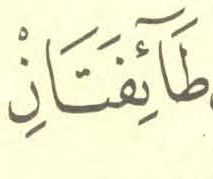 طَآئِفَتَانِ